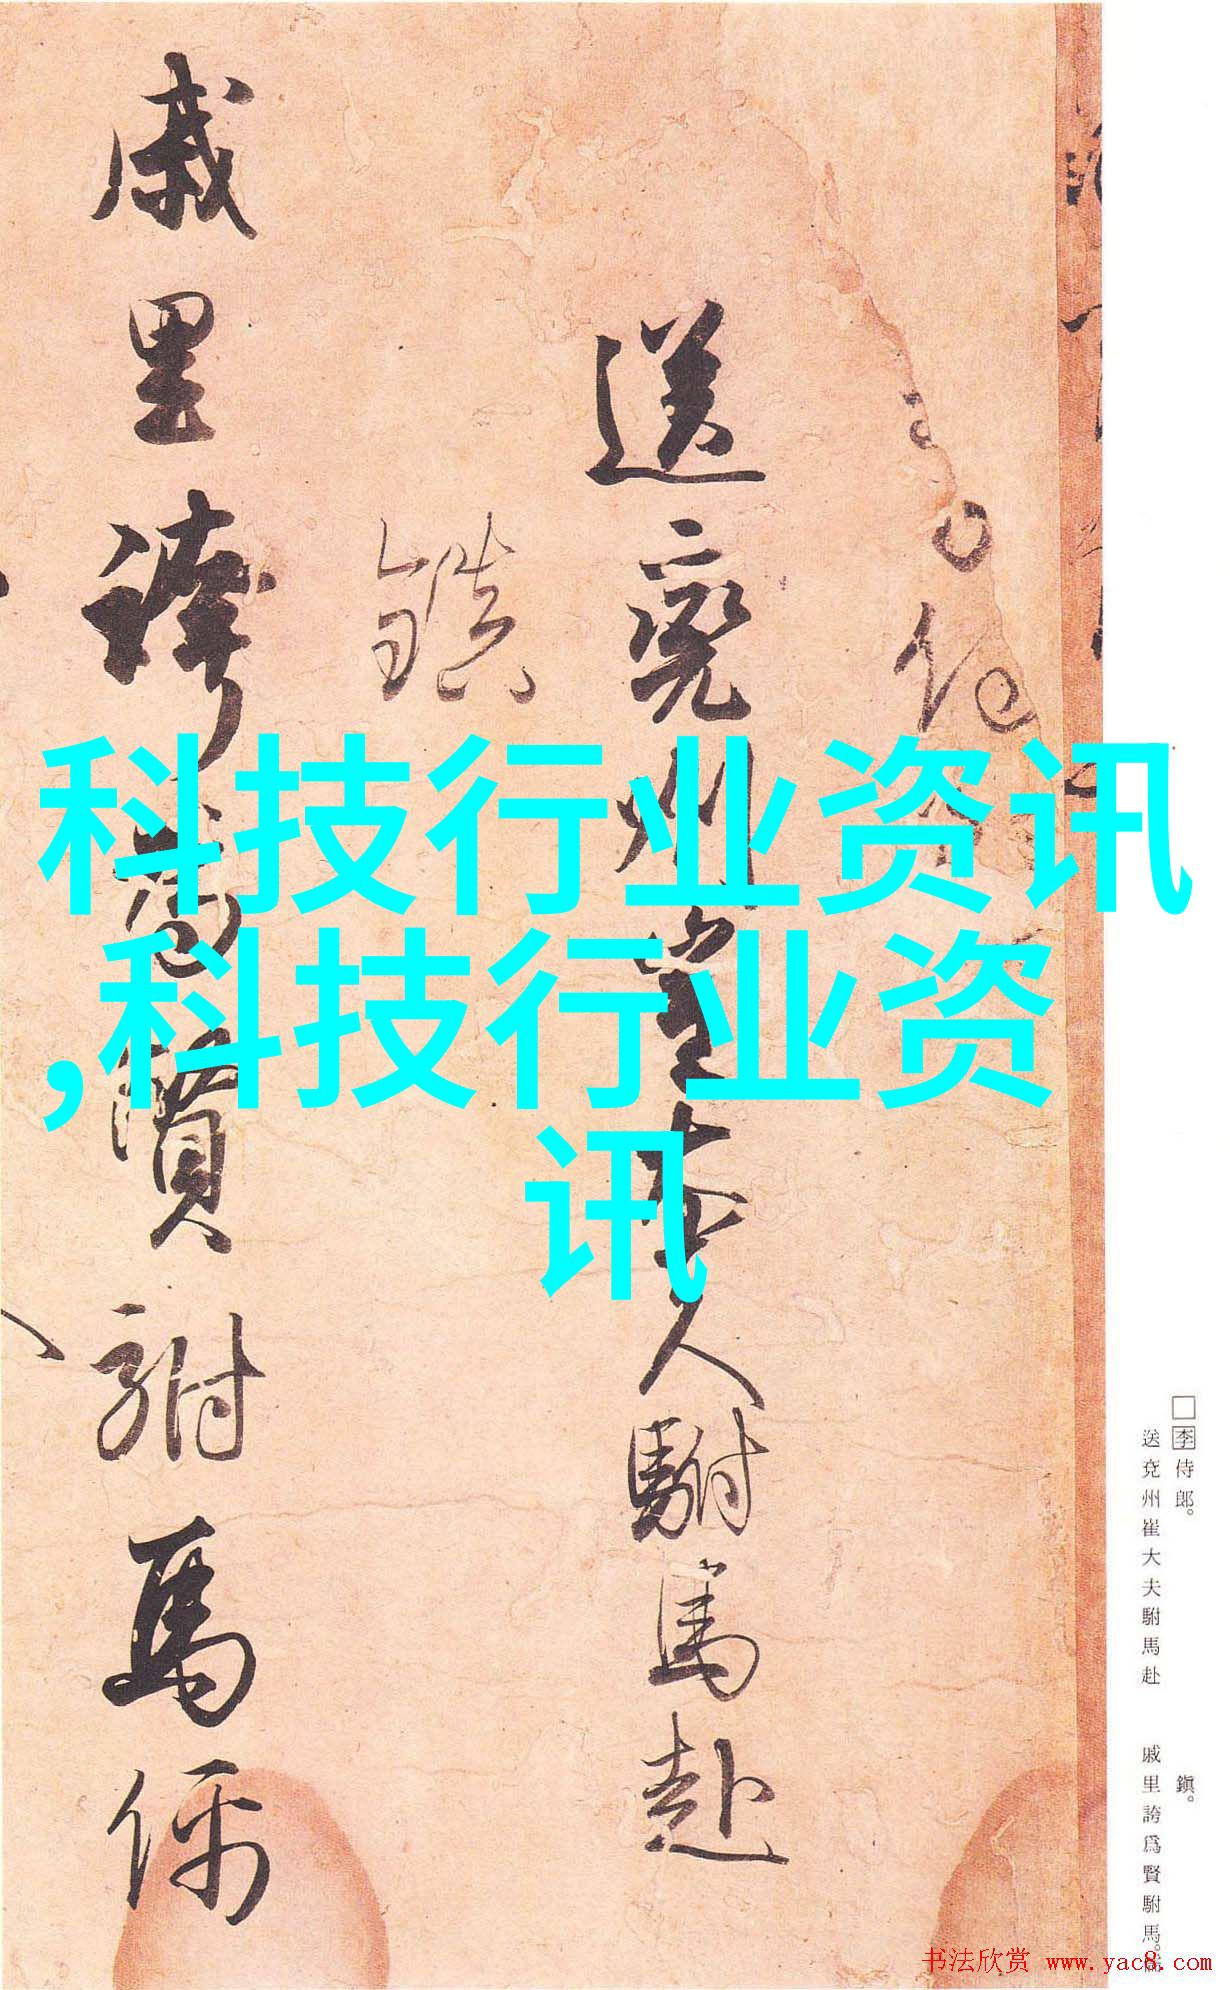 □李侍郎。
送兗州崔大夫駙馬赴
鎮。
戚里誇為賢駙馬儒
科技行业资讯
,科技行业资
讯
□李侍郎。
送兗州崔大夫駙馬赴
鎮。
戚里誇爲賢駙馬。儒
书法欣赏 www.yac8.com